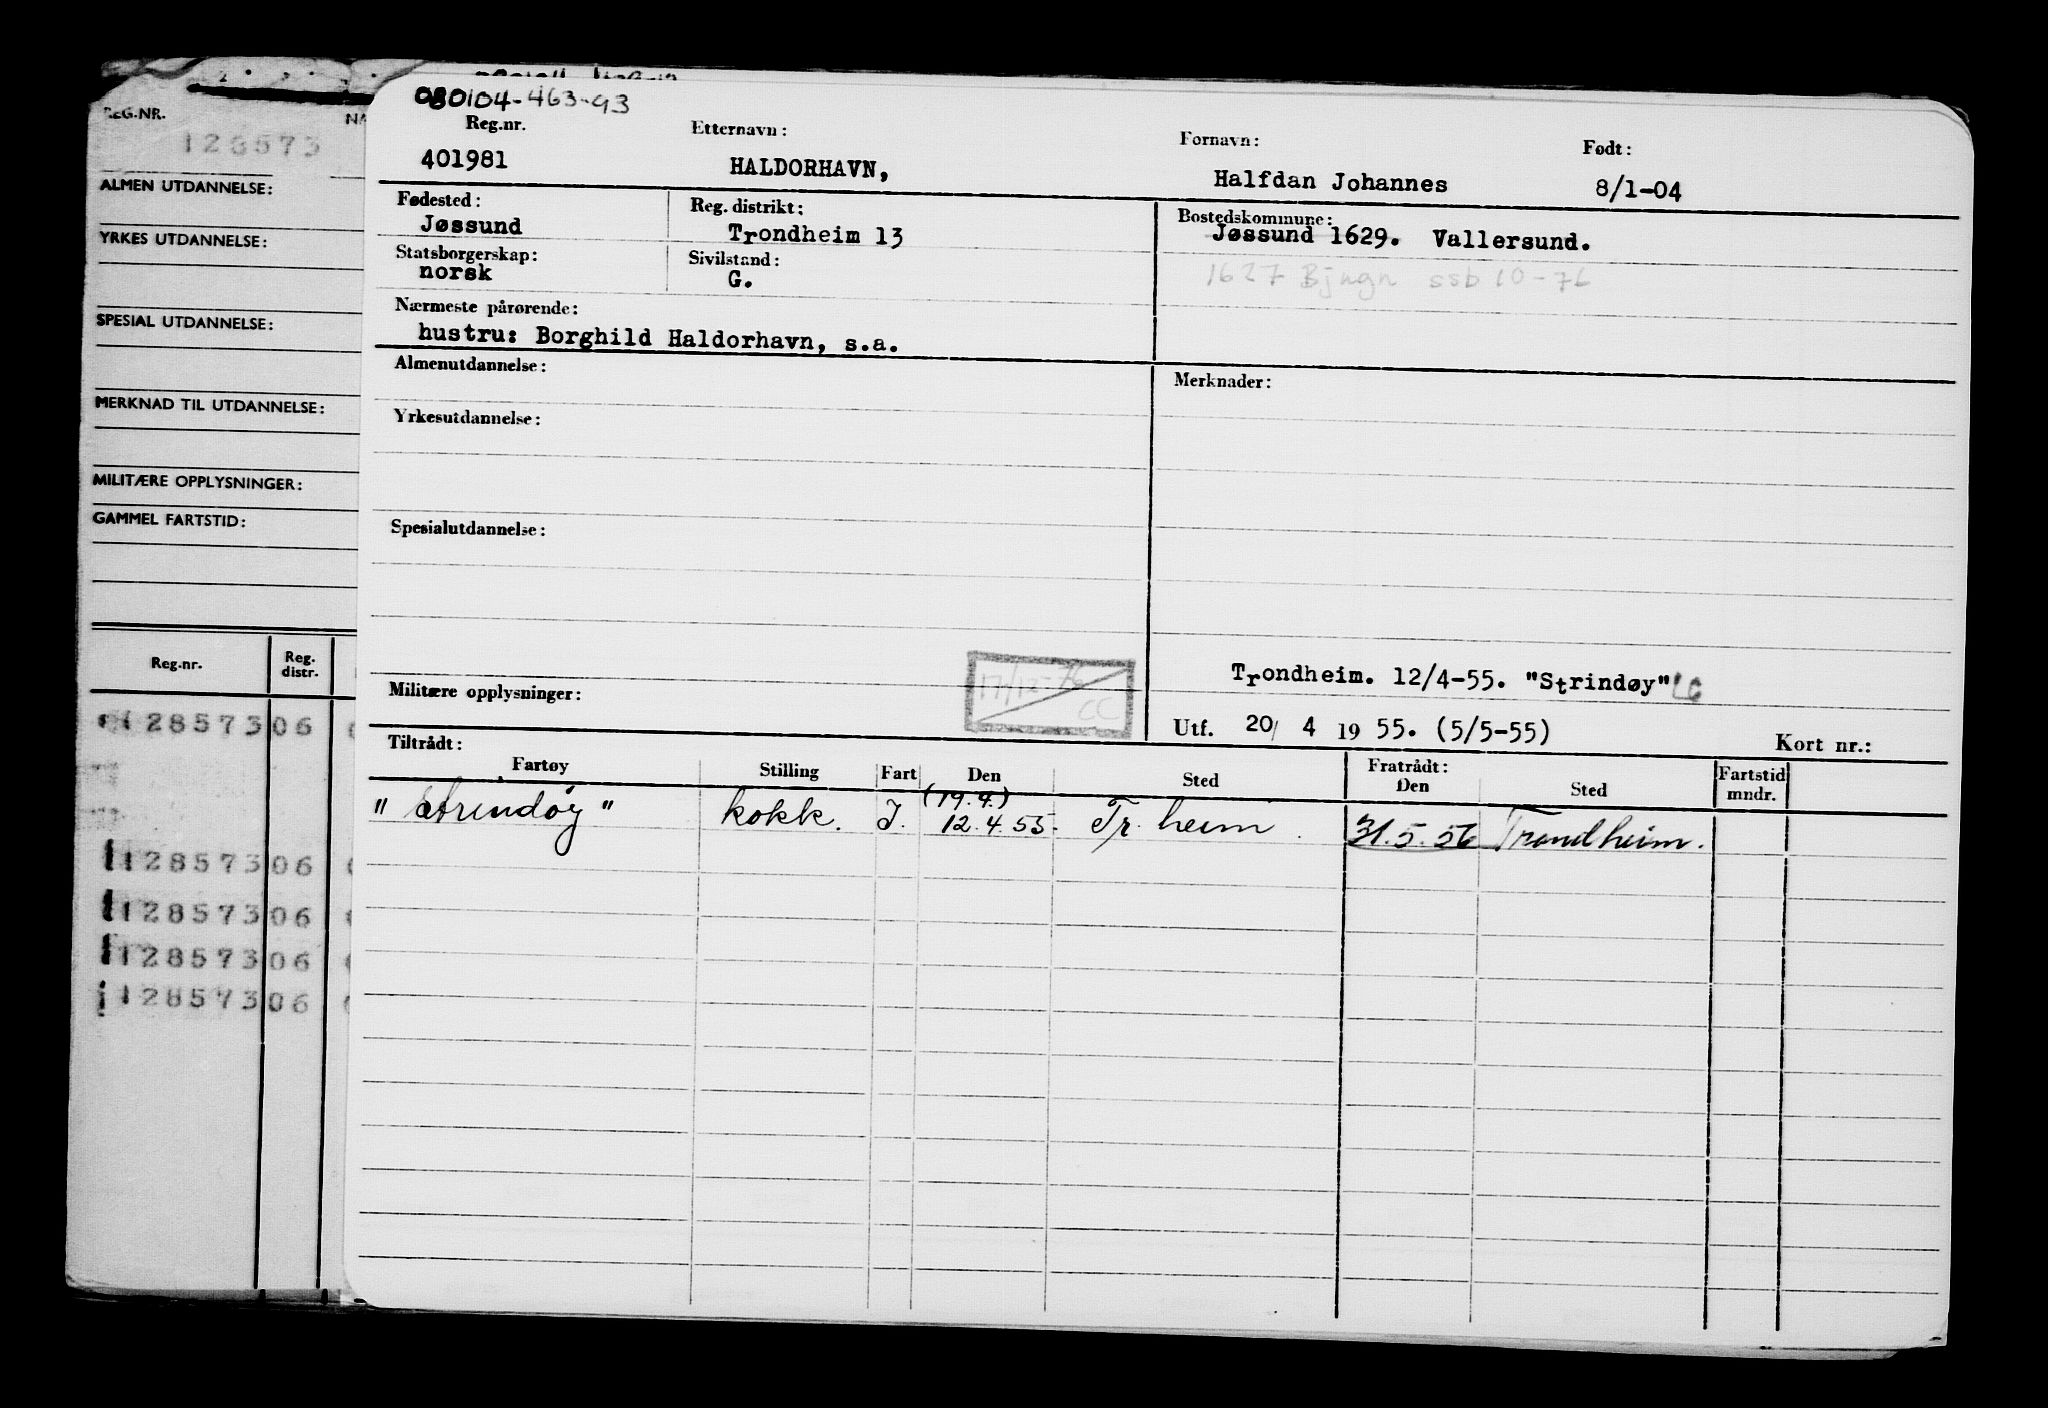 080104-463-93
Reg.nr. Etternavn: Fornavn: Født:
401981 HALDORHAVN, Halfdan Johannes 8/1-04
Fødested: Reg. distrikt: Bostedskommune:
Jøssund Trondheim 13 Jøssund 1629. Vallersund.
Statsborgerskap: Sivilstand:
norsk G. 1627 Bjugn ssb 10-76
Nærmeste pårørende:
hustru: Borghild Haldorhavn, s.a.
Almenutdannelse: Merknader:
Yrkesutdannelse:
Spesialutdannelse:
Trondheim. 12/4-55. "Strindøy"
Militære opplysninger: 17/12-76 CC
Utf. 20/ 4 19 55. (5/5-55) Kort nr.:
Tiltrådt: Fratrådt:
Fartøy Stilling Fart Den Sted Den Sted Fartstid mndr.
(19.4.)
"Strindøy" kokk. I. 12.4.55. Tr.heim. 31.5.56 Trondheim.
REG.NR. NA
128573
ALMEN UTDANNELSE:
YRKES UTDANNELSE:
SPESIAL UTDANNELSE:
MERKNAD TIL UTDANNELSE:
MILITÆRE OPPLYSNINGER:
GAMMEL FARTSTID:
Reg.nr. Reg. distr.
128573 06
128573 06
128573 06
128573 06
128573 06